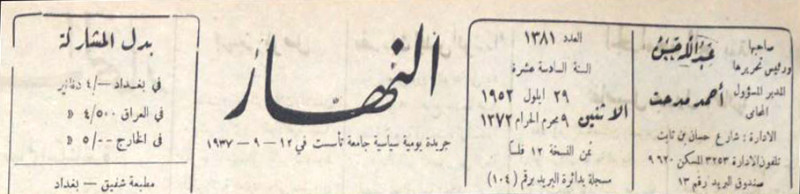 صاحبها
ورئيس تحريرها
عبد الله حسن
المدير المسؤول
المحامي
أحمد مدحت
الادارة : شارع حسان بن ثابت
تلفون الادارة ٣٢٥٣ المسكن ٩٦٢٠
صندوق البريد رقم ١٣
العدد ١٣٨١
السنة السادسة عشرة
الاثنين
٢٩ ايلول ١٩٥٢
٩ محرم الحرام ١٢٧٢
ثمن النسخة ١٢ فلساً
مسجلة بدائرة البريد برقم (١٠٤)
النهار
جريدة يومية سياسية جامعة تأسست في ١٢ – ٩ – ١٩٣٧
بدل المشاركة
في بغداد ٤/– دنانير
في العراق ٤/٥٠٠ »
في الخارج ٥/٠٠ »
مطبعة شفيق – بغداد